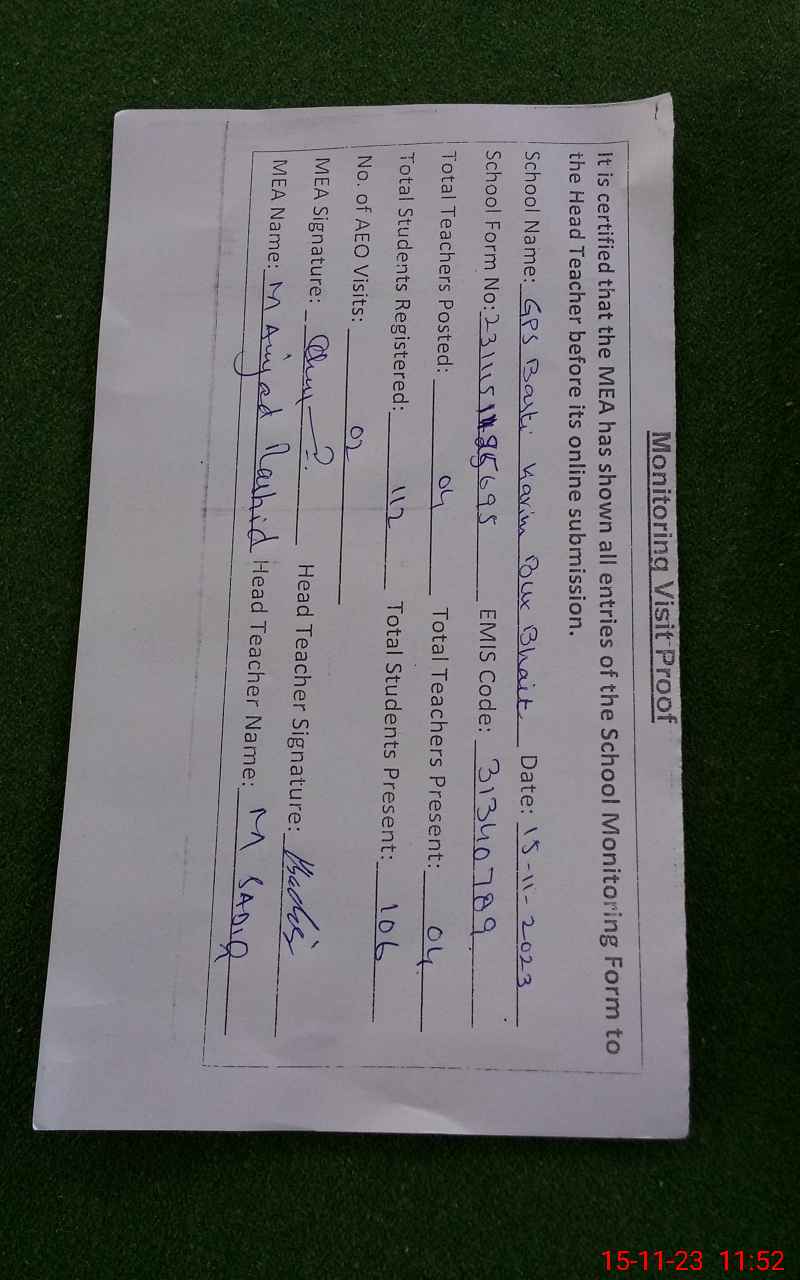 Monitoring Visit Proof
It is certified that the MEA has shown all entries of the School Monitoring Form to
the Head Teacher before its online submission.
School Name: GPS Basti Karim Bux Bhait Date: 15-11-2023
School Form No: EMIS Code: 31340789
Total Teachers Posted: 04 Total Teachers Present: 04
Total Students Registered: 112 Total Students Present: 106
No. of AEO Visits: 02
MEA Signature: Head Teacher Signature:
MEA Name: M Amjad Rashid Head Teacher Name: M SADIQ
15-11-23 11:52